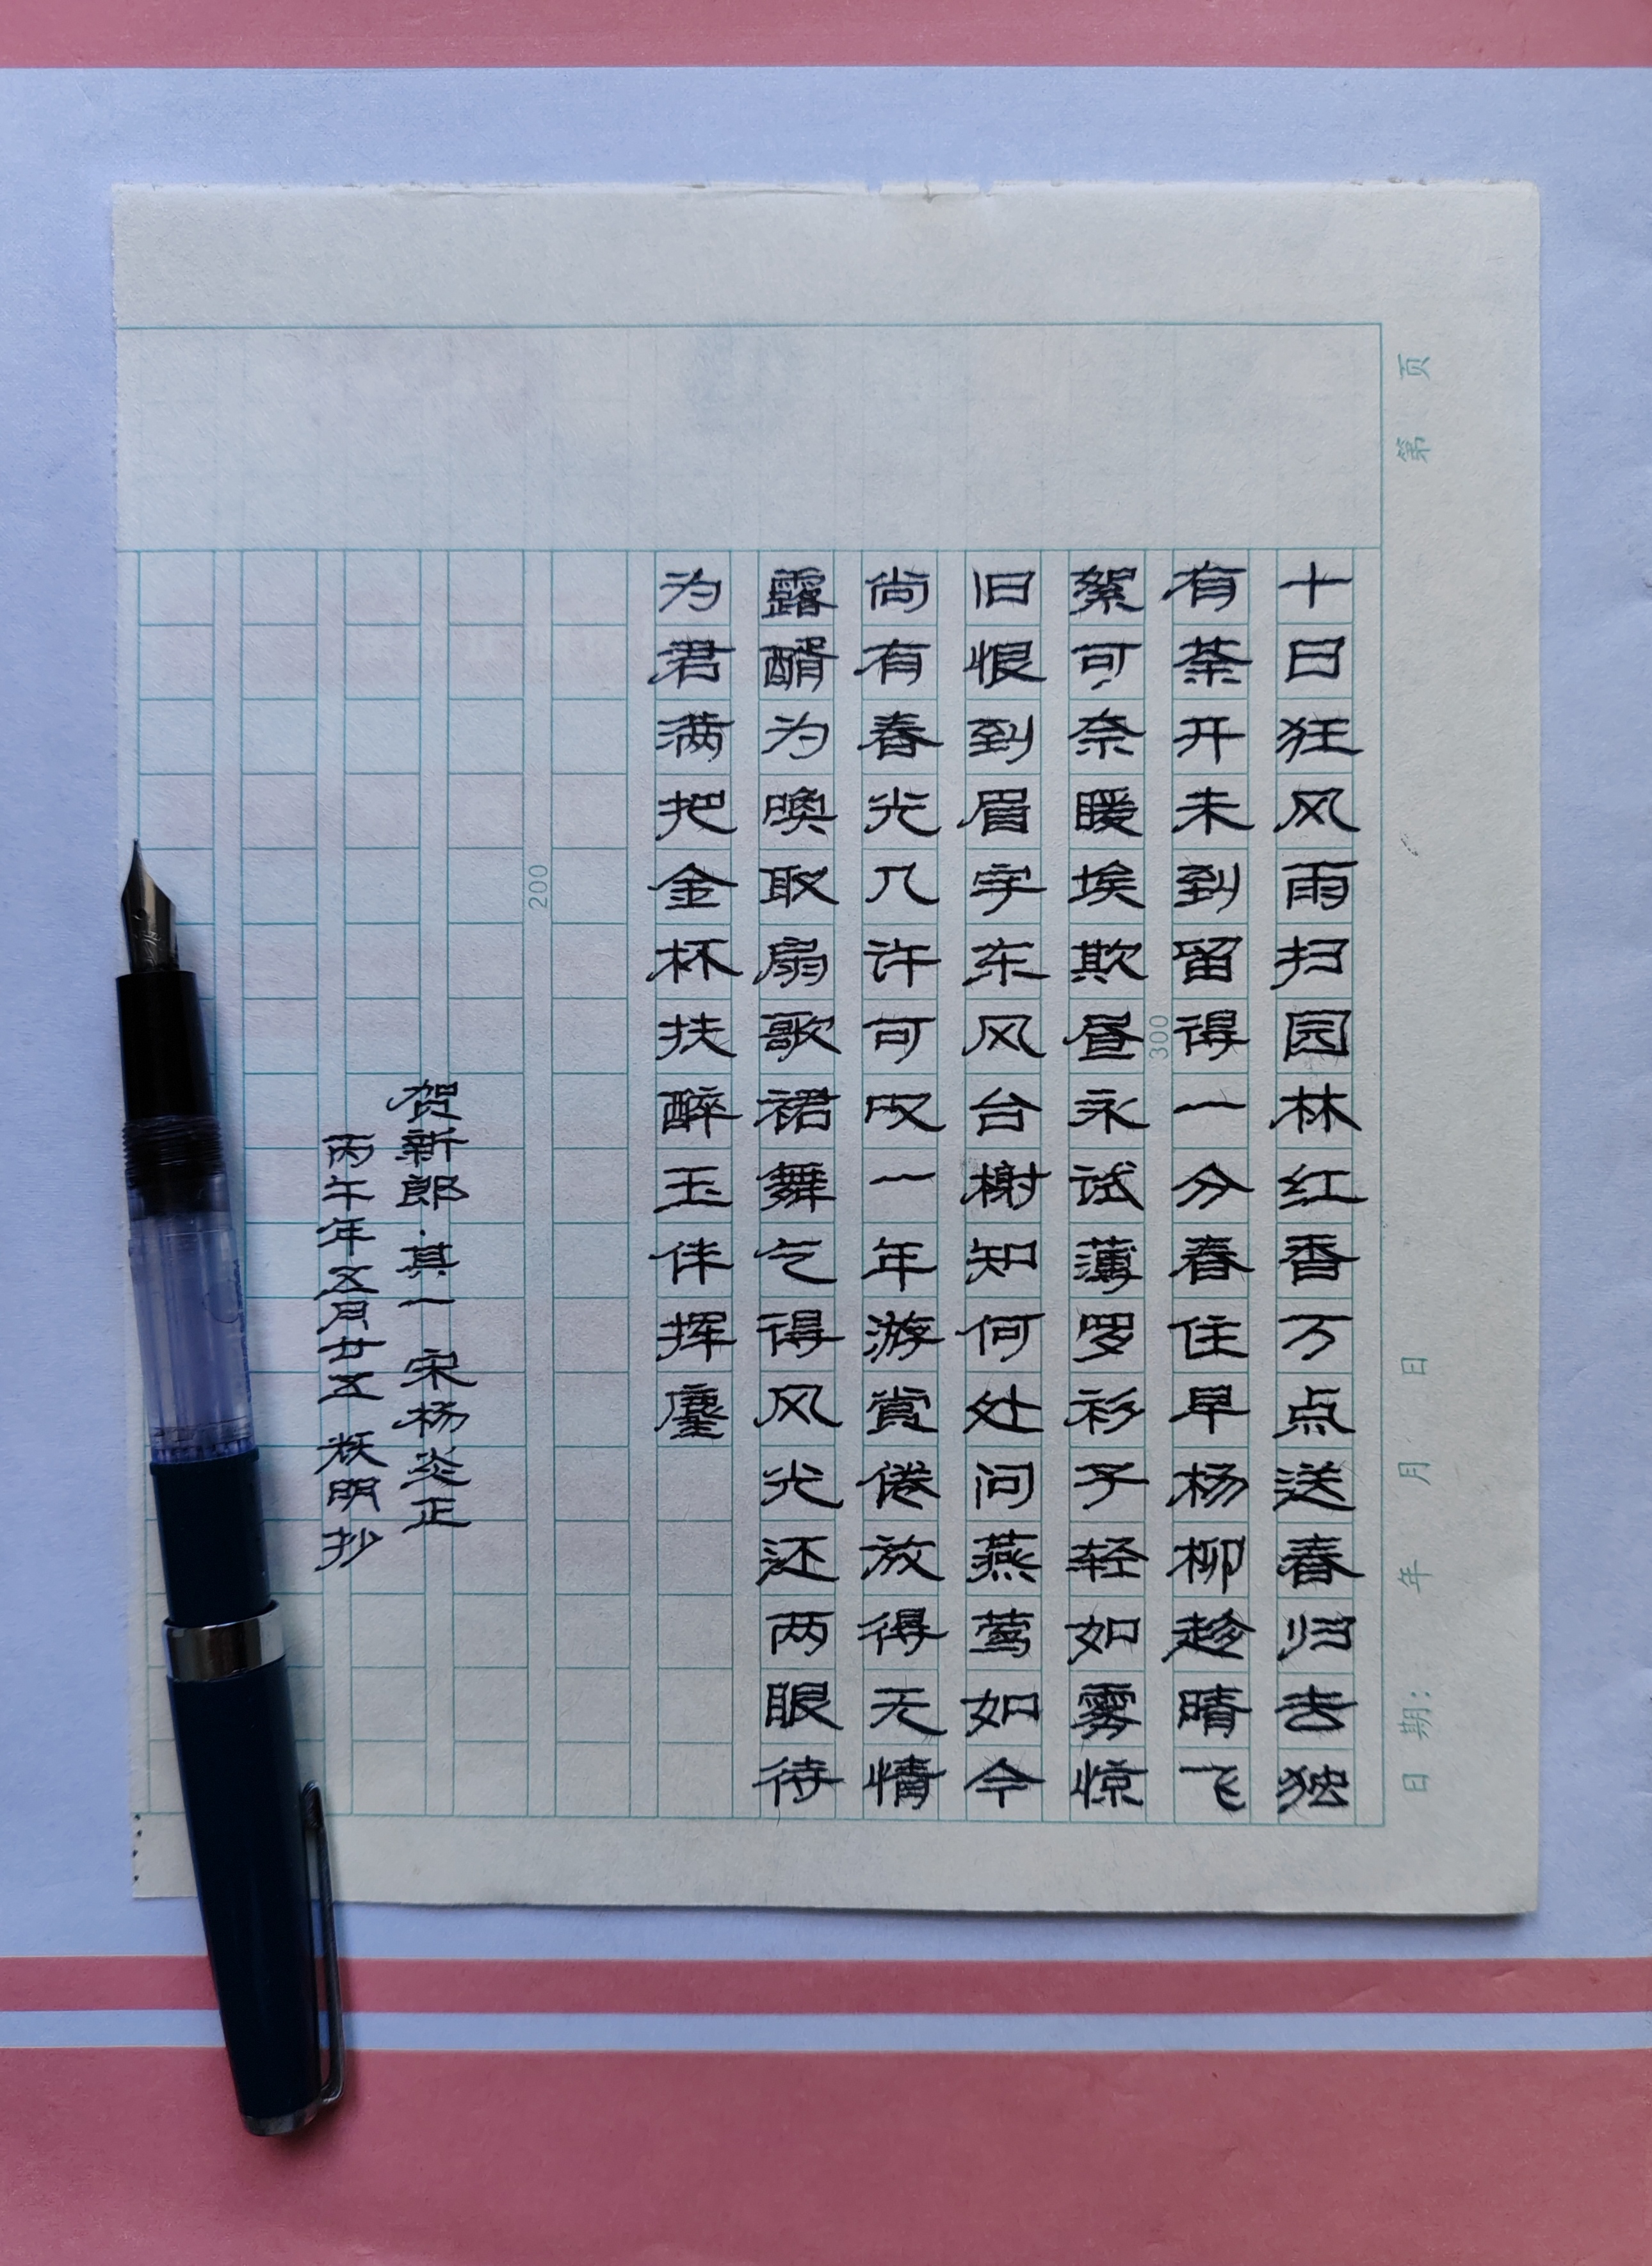 十日狂风雨扫园林红香万点送春归去独
有荼开未到留得一分春住早杨柳趁晴飞
絮可奈暖埃欺昼永试薄罗衫子轻如雾惊
旧恨到眉宇东风台榭知何处问燕莺如今
尚有春光几许可叹一年游赏倦放得无情
露醑为唤取扇歌裙舞乞得风光还两眼待
为君满把金杯扶醉玉伴挥麈
贺新郎·其一 宋杨炎正
丙午年五月廿五 明抄
第 页
日期: 年 月 日
200
300